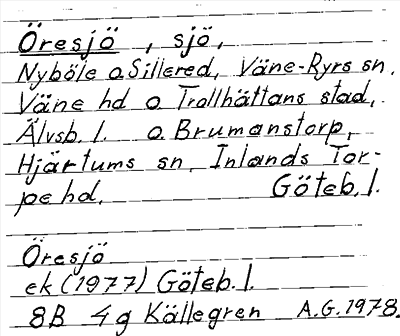 Öresjö, sjö,
Nyböle o Sillered, Väne-Ryrs sn.
Väne hd o Trollhättans stad,
Älvsb. l. o Brumanstorp,
Hjärtums sn, Inlands Tor-
pe hd, Göteb. l.
Öresjö
ek (1977) Göteb. l.
8B 4g Källegren A.G. 1978.